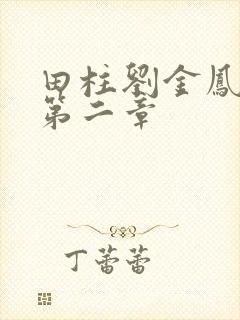 田柱劉金鳳
第二章
丁蕾蕾